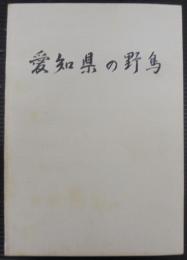 愛知県の野鳥